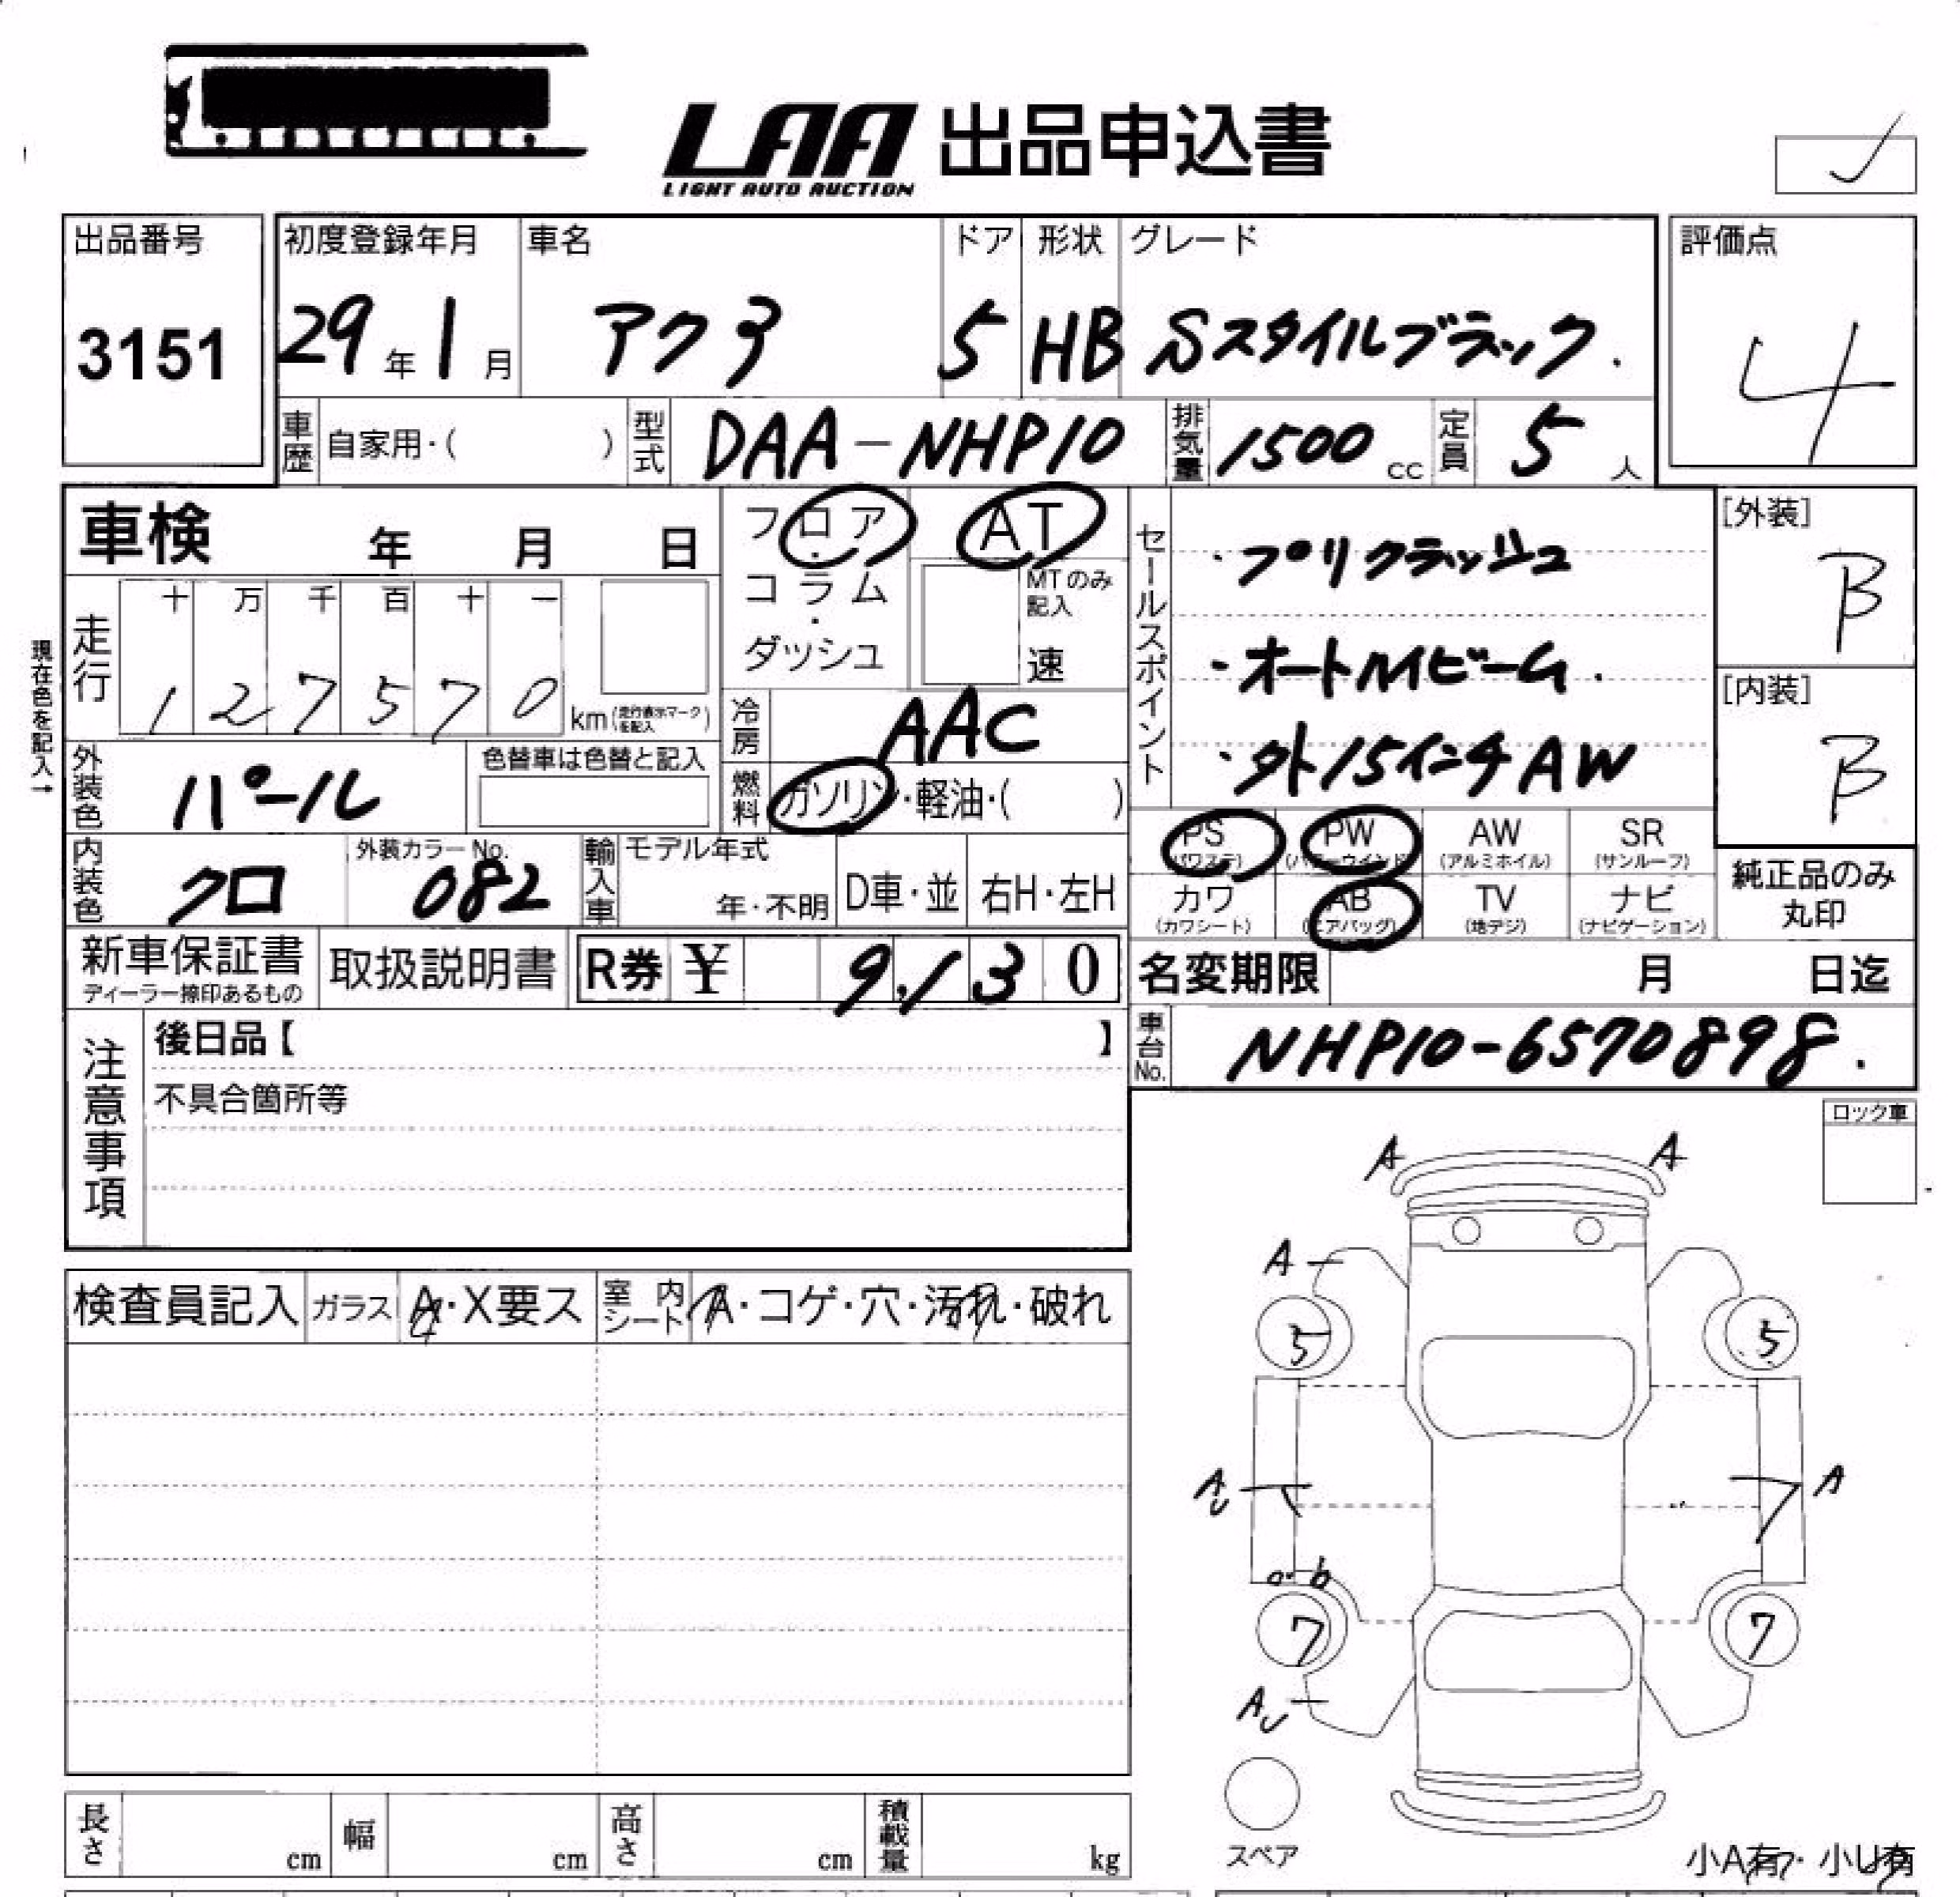 LAA 出品申込書
LIGHT AUTO AUCTION
出品番号
3151
初度登録年月
29年1月
車名
アクア
ドア
5
形状
HB
グレード
Sスタイルブラック.
評価点
4
車歴
自家用・( )
型式
DAA-NHP10
排気量
1500cc
定員
5人
車検 年 月 日
フロア・コラム・ダッシュ
AT
MTのみ記入
速
走行
十 万 千 百 十 一
1 2 7 5 7 0
km(走行表示マークを記入)
現在色を記入→
冷房
AAC
外装色
パール
色替車は色替と記入
燃料
ガソリン・軽油・( )
内装色
クロ
外装カラーNo.
082
輸入車
モデル年式
年・不明
D車・並
右H・左H
セールスポイント
・プリクラッシュ
・オートハイビーム.
・外15インチAW
[外装]
B
[内装]
B
PS (パワステ)
PW (パワーウインド)
AW (アルミホイル)
SR (サンルーフ)
カワ (カワシート)
AB (エアバッグ)
TV (地デジ)
ナビ (ナビゲーション)
純正品のみ丸印
新車保証書
ディーラー捺印あるもの
取扱説明書
R券 ¥ 9,130
名変期限 月 日迄
車台No.
NHP10-6570898.
注意事項
後日品【 】
不具合箇所等
ロック車
A A
A
5 5
AU A
b
7 7
AU
検査員記入
ガラス
A・X要ス
室内シート
A・コゲ・穴・汚れ・破れ
長さ cm
幅 cm
高さ cm
積載量 kg
スペア
小A有・小U有